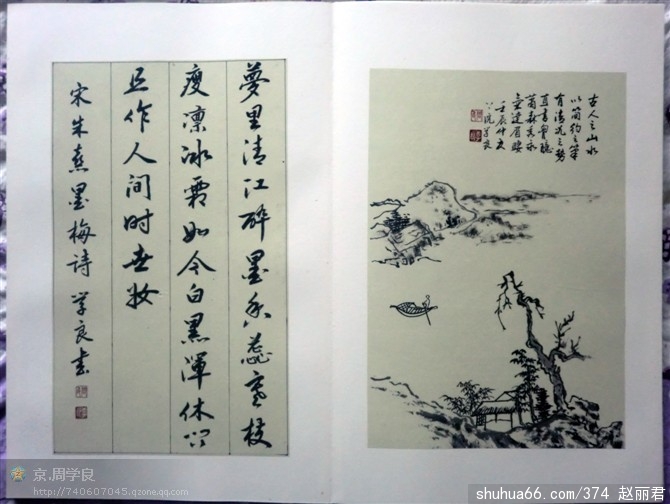 夢里清江醉墨香蕊寒枝
瘦凛冰霜如今白黑渾休问
且作人间时世妆
宋朱熹墨梅诗 学良书
古人之山水
以简约之笔
有清之势
直书胸臆
壬辰仲夏
学良
京.周学良
http://740607045.qzone.qq.com
shuhua66.com/374 赵丽君